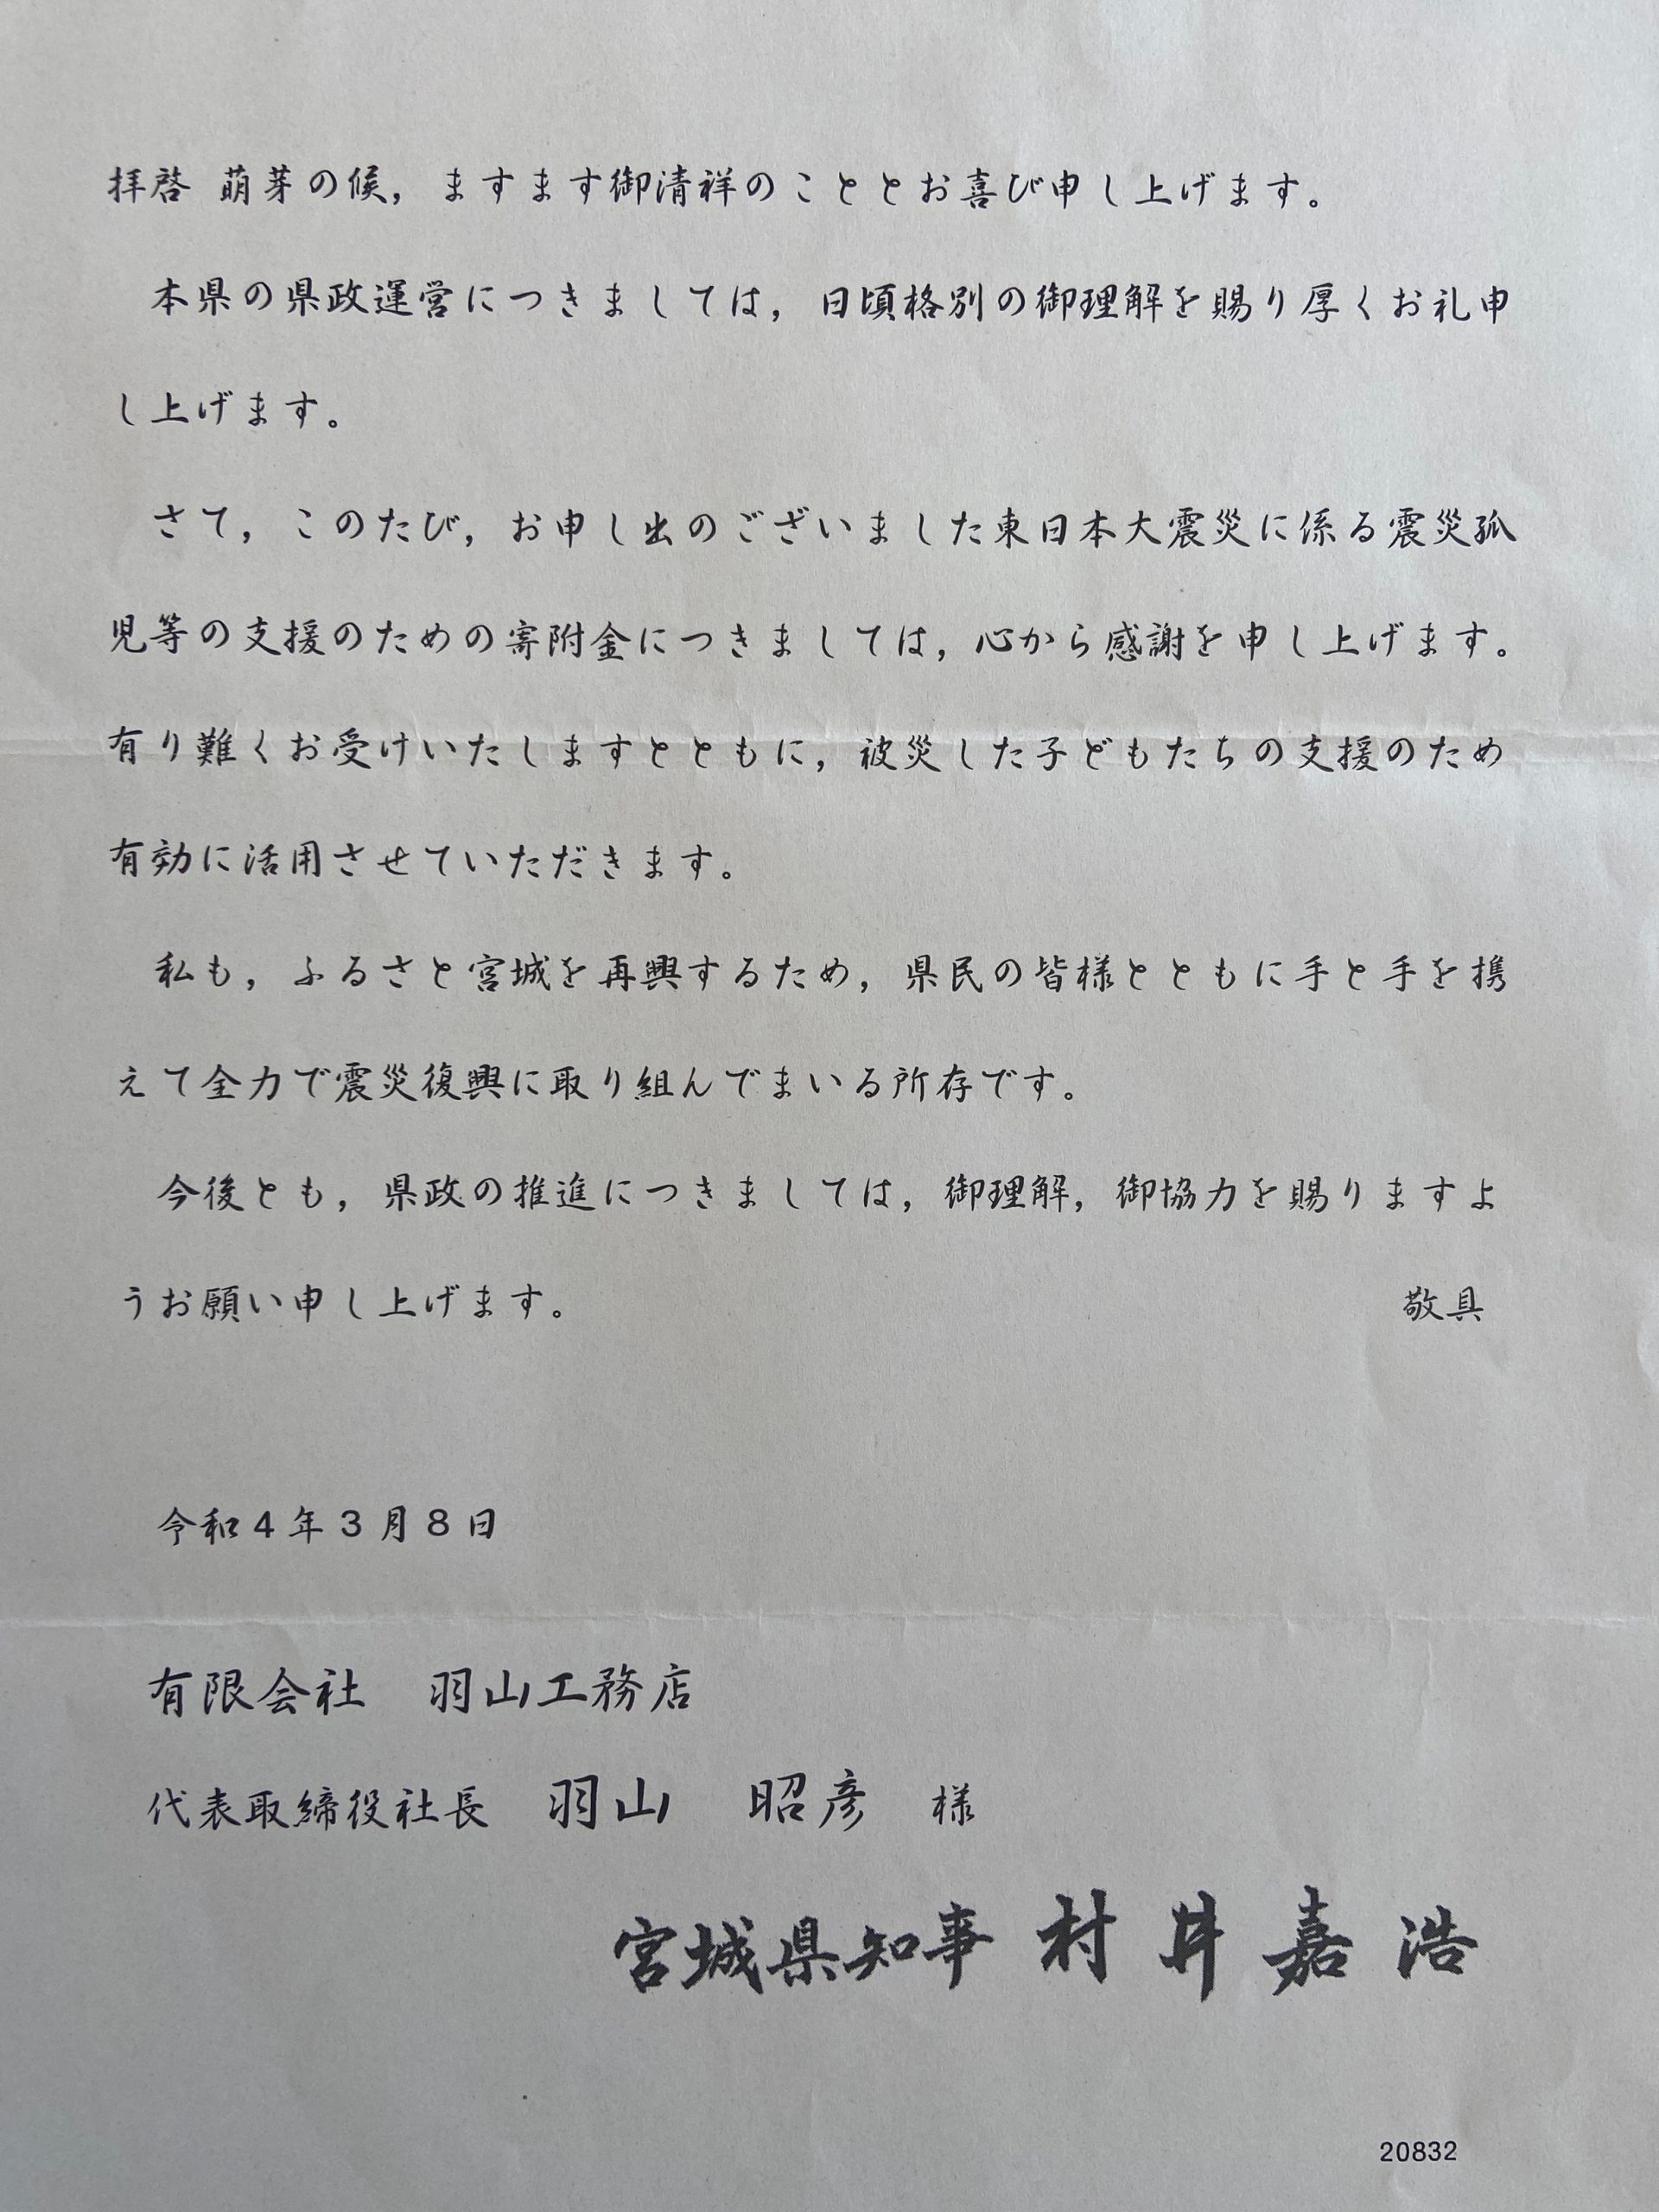 拝啓 萌芽の候，ますます御清祥のこととお喜び申し上げます。
本県の県政運営につきましては，日頃格別の御理解を賜り厚くお礼申
し上げます。
さて，このたび，お申し出のございました東日本大震災に係る震災孤
児等の支援のための寄附金につきましては，心から感謝を申し上げます。
有り難くお受けいたしますとともに，被災した子どもたちの支援のため
有効に活用させていただきます。
私も，ふるさと宮城を再興するため，県民の皆様とともに手と手を携
えて全力で震災復興に取り組んでまいる所存です。
今後とも，県政の推進につきましては，御理解，御協力を賜りますよ
うお願い申し上げます。 敬具
令和４年３月８日
有限会社　羽山工務店
代表取締役社長　羽山　昭彦　様
宮城県知事 村井嘉浩
20832